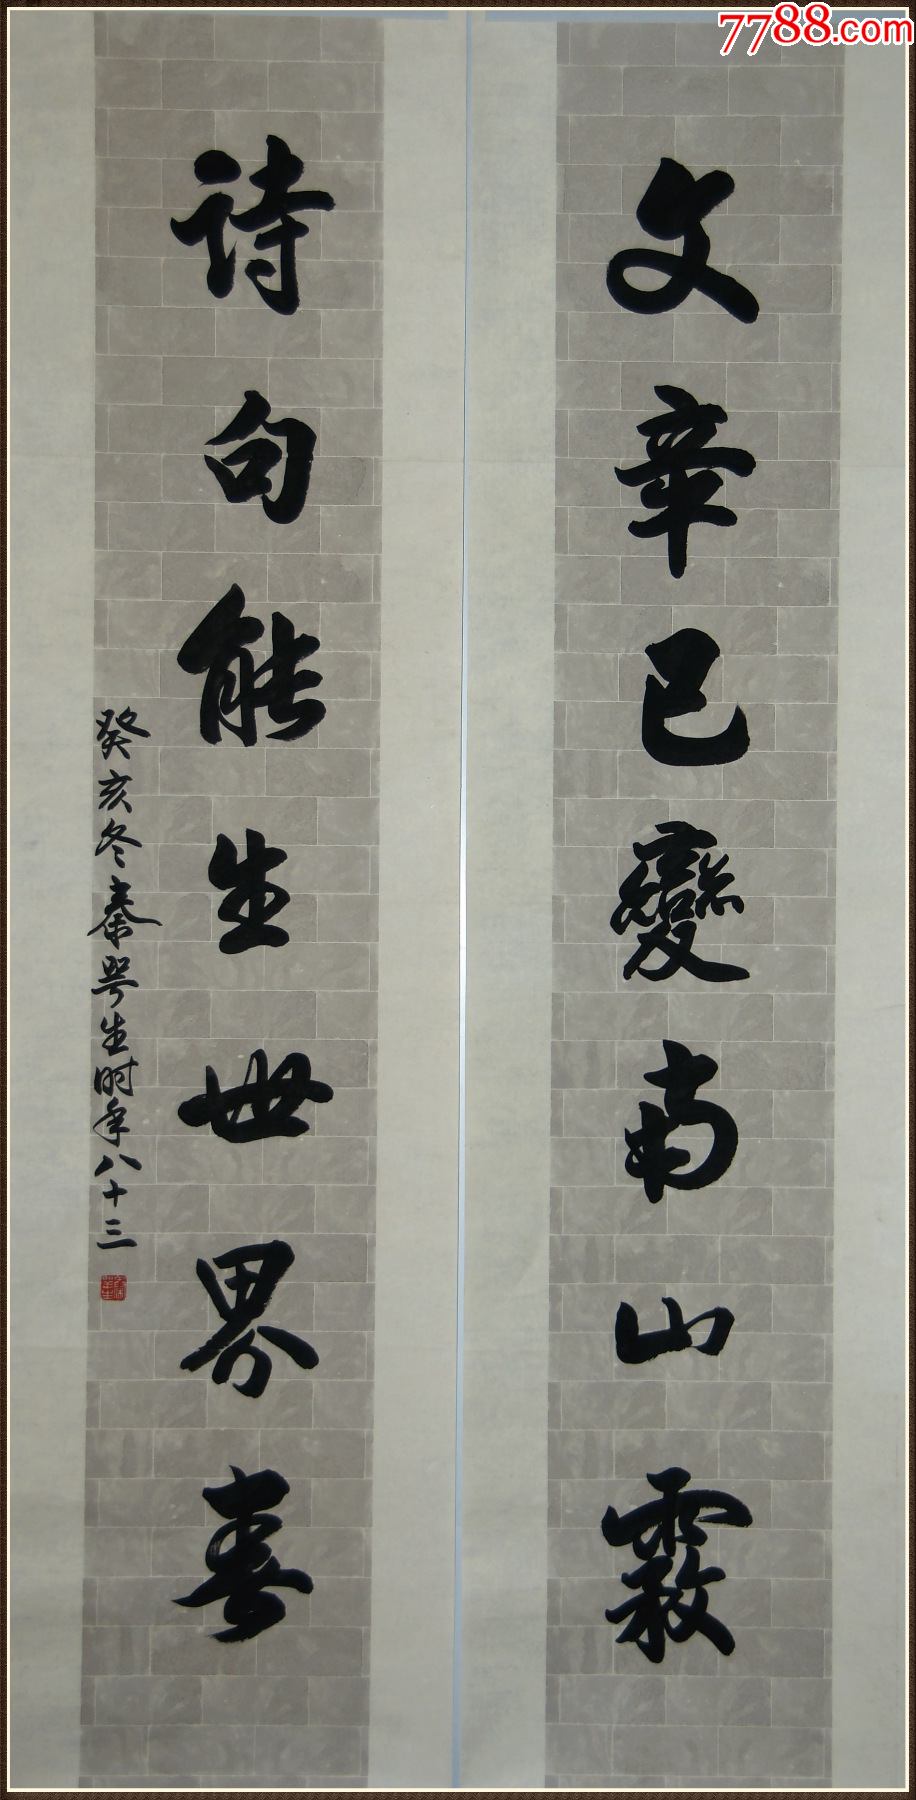 7788.com
文章已變南山霧
詩句能生世界春
癸亥冬秦咢生时年八十三